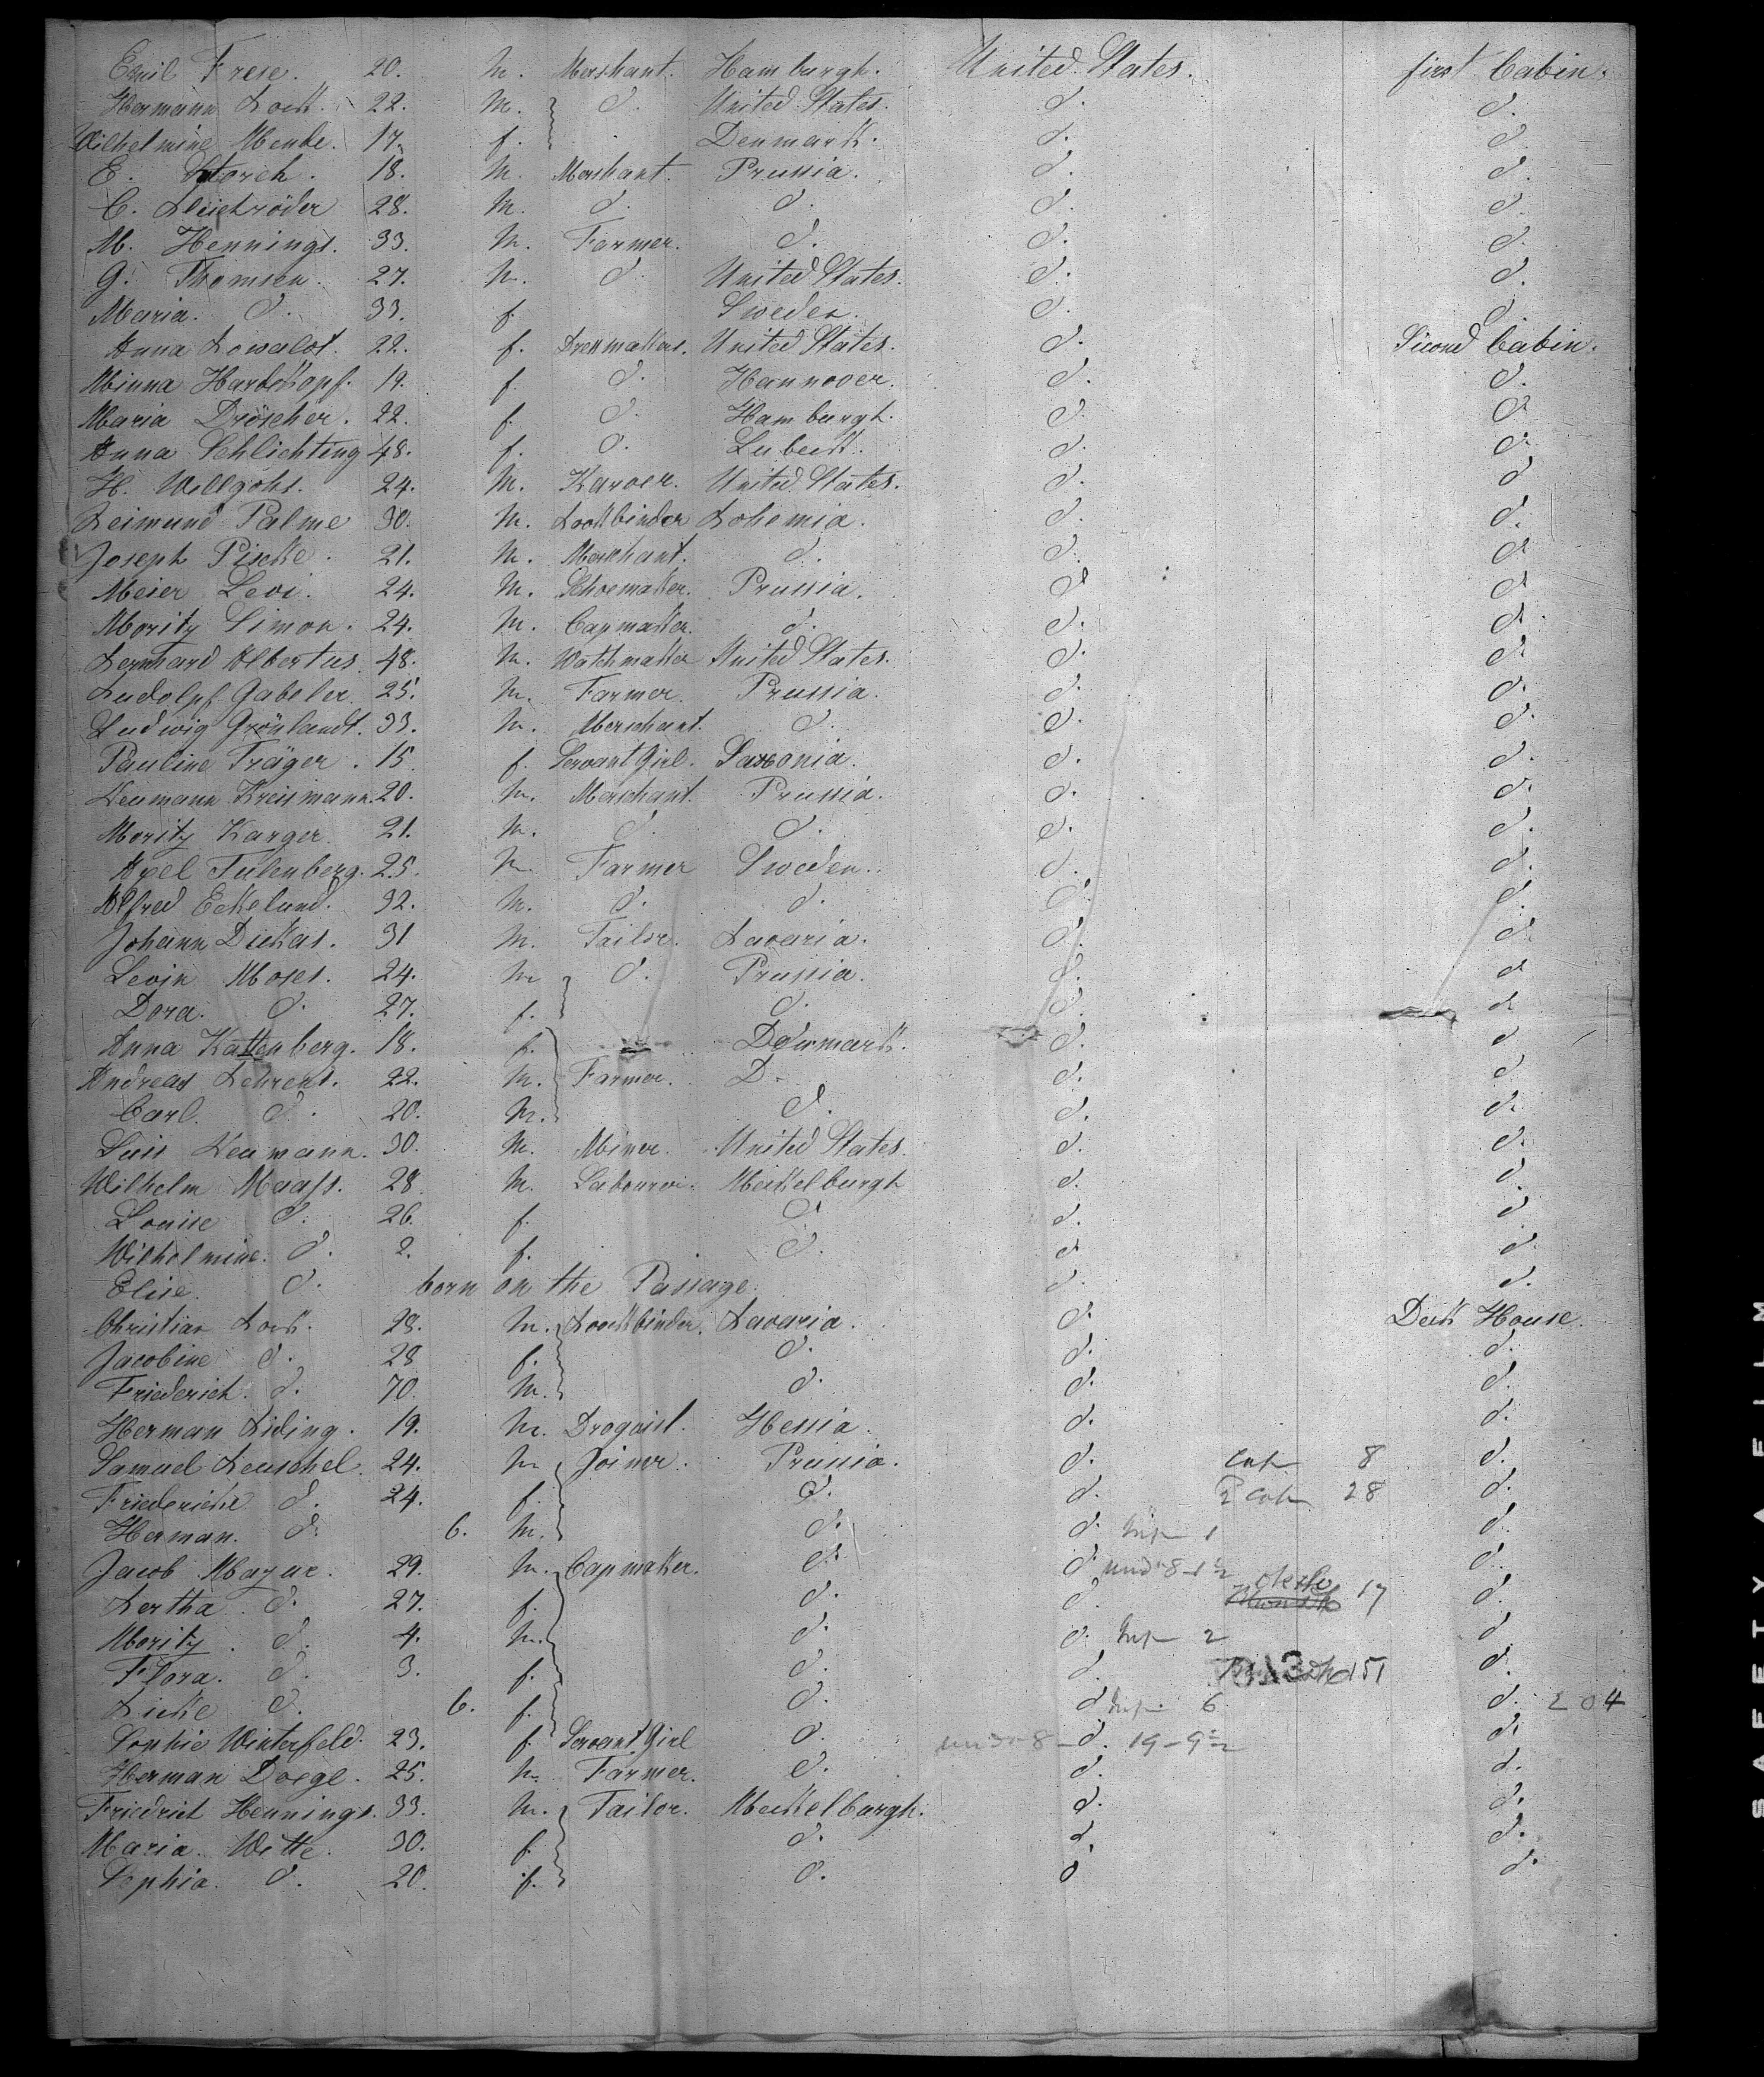 Emil Frese. 20. m. Merchant. Hamburgh. United States. first Cabin.
Hermann Bock. 22. m. d. United States. d. d.
Wilhelmine Mende. 17. f. Denmark. d. d.
E. Storch. 18. m. Merchant. Prussia. d. d.
C. Bleichröder 28. m. d. d. d. d.
M. Hennings. 33. m. Farmer. d. d. d.
G. Thomsen. 27. m. d. United States. d. d.
Maria. d. 33. f. Sweden. d. d.
Anna 22. f. Dressmakers. United States. d. Second Cabin.
Minna Hardekopf. 19. f. d. Hannover. d. d.
Maria Dröscher. 22. f. d. Hamburgh. d. d.
Anna Schlichting 48. f. d. Lubeck. d. d.
H. Willgohs. 24. m. Karver. United States. d. d.
Reimund Palme 30. m. Bookbinder Bohemia. d. d.
Joseph Pischke. 21. m. Merchant. d. d. d.
Meier Levi. 24. m. Schoemaker. Prussia. d. d.
Moritz Simon. 24. m. Capmaker. d. d. d.
Bernhard Albertus. 48. m. Watchmaker United States. d. d.
Rudolpf Gabeler. 25. m. Farmer. Prussia. d. d.
Ludwig Grönlandt. 33. m. Merschant. d. d. d.
Pauline Träger. 15. f. Servant Girl. Saxonia. d. d.
Neumann Kreismann. 20. m. Merschant. Prussia. d. d.
Moritz Karger 21. m. d. d. d. d.
Axel Tulenberg. 25. m. Farmer Sweden. d. d.
Alfred Eckelund. 32. m. d. d. d. d.
Johann Dickas. 31 m. Tailor. Bavaria. d. d.
Levin Moses. 24. m d. Prussia. d. d.
Dora. d. 27. f. d. d. d.
Anna Kattenberg. 18. f. Denmark. d. d.
Andreas Behrens. 22. m. Farmer. D. d. d.
Carl. d. 20. m. d. d. d.
Luis Neumann. 30. m. Miner. United States. d. d.
Wilhelm Maass. 28. m. Labourer. Meckelburgh d. d.
Louise d. 26. f. d. d. d.
Wilhelmine. d. 2. f. d. d. d.
Elise. d. born on the Passage. d. d.
Christian Bock. 28. m. Boockbinder. Bavaria. d. Deck House.
Jacobine d. 28 f. d. d. d.
Friederich. d. 70. m. d. d. d.
Herman Biding. 19. m. Drogoist. Hessia. d. d.
Samuel Beuschel. 24. m Joiner. Prussia. d. cab 8 d.
Friederiche d. 24. f. d. d. 2 cab 28 d.
Herman. d. 6. m. d. d. Inf 1 d.
Jacob Mazur. 29. m. Capmaker. d. d. und 8-1/2 d.
Bertha d. 27. f. d. d. 17 d.
Moritz. d. 4. m. d. d. Inf 2 d.
Flora. d. 3. f. d. d. 151 d.
Rieke d. 6. f. d. d. Inf 6 d. 204
Sophie Winterfeld. 23. f. Servant Girl d. und 8 - d. 19-9 1/2 d.
Herman Doege. 25. m. Farmer. d. d. d.
Friedrich Hennings. 33. m. Tailor. Meckelburgh. d. d.
Maria. Witte. 30. f. d. d. d.
Sophia. d. 20. f. d. d. d.
SAFETY FILM